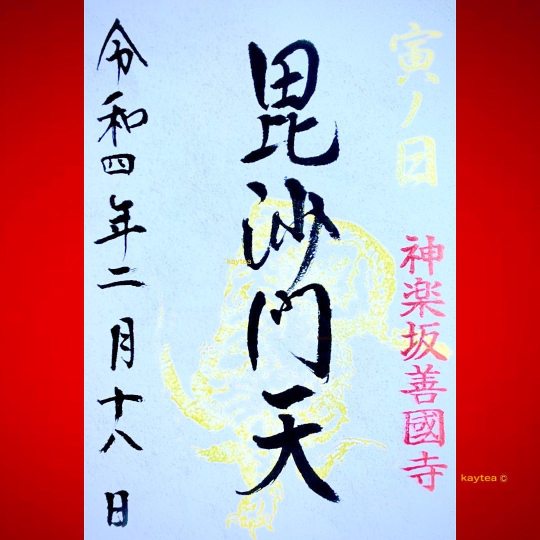 寅ノ日
神楽坂善國寺
毘沙門天
令和四年二月十八日
kaytea
kaytea ©